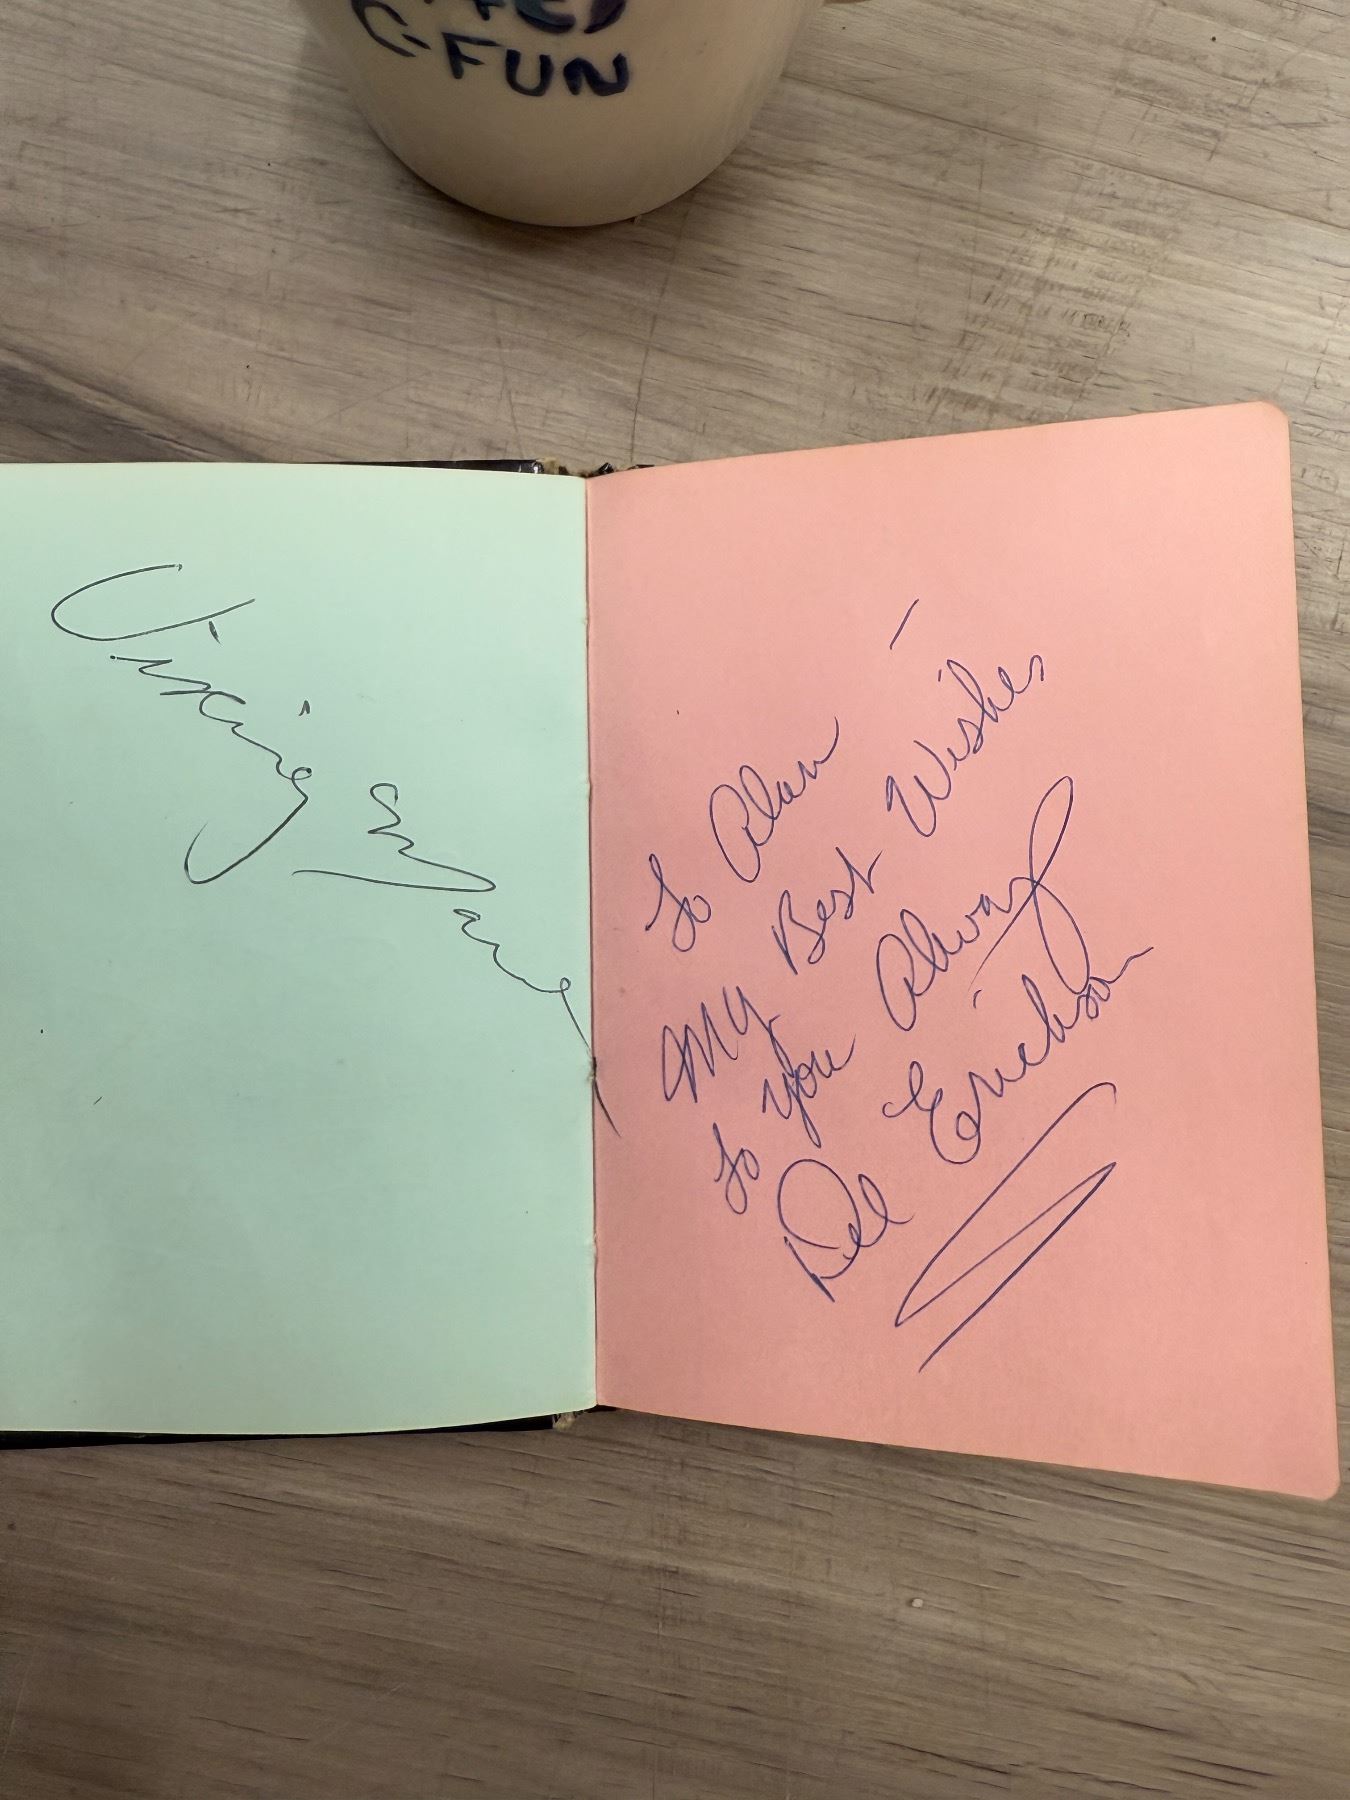 C-FUN
Viking
To Alan
My Best Wishes
to you Always
Del Erickson